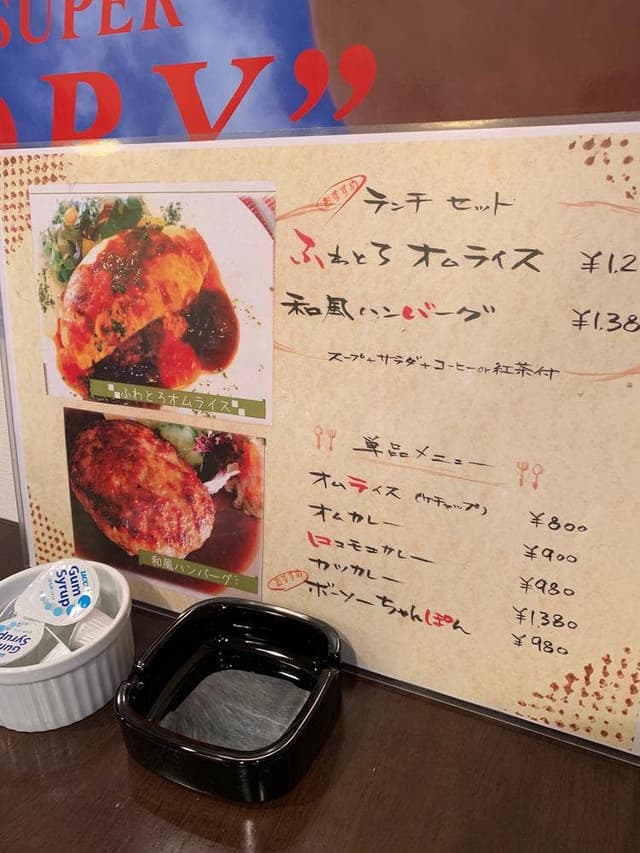 SUPER
ORY”
おすすめ
ランチ セット
ふわとろ オムライス ¥1.2
和風ハンバーグ ¥1.38
スープ+サラダ+コーヒーor紅茶付
ふわとろオムライス
和風ハンバーグ
単品メニュー
オムライス (ケチャップ) ¥800
オムカレー ¥900
ロコモコカレー ¥980
カツカレー ¥1380
おすすめ
ボーソーちゃんぽん ¥980
Gum
Syrup
Gum
Syrup